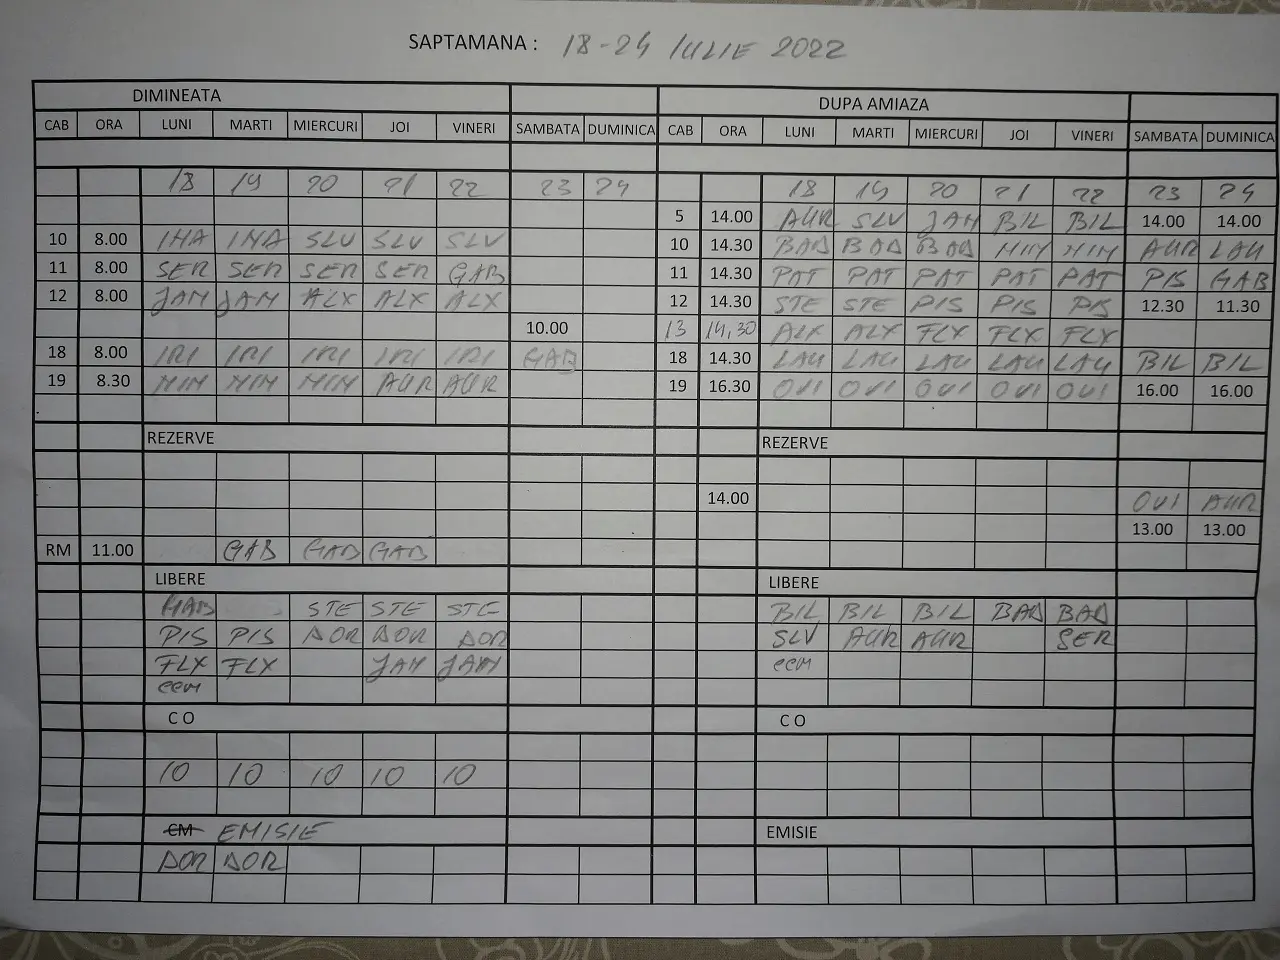 SAPTAMANA : 18-24 IULIE 2022
DIMINEATA DUPA AMIAZA
CAB ORA LUNI MARTI MIERCURI JOI VINERI SAMBATA DUMINICA CAB ORA LUNI MARTI MIERCURI JOI VINERI SAMBATA DUMINICA
18 19 20 21 22 23 24 18 19 20 21 22 23 24
5 14.00 AUR SLV JAM BIL BIL 14.00 14.00
10 8.00 INA INA SLV SLV SLV 10 14.30 BAD BAD BAD MIM MIM AUR LAU
11 8.00 SER SER SER SER GAB 11 14.30 PAT PAT PAT PAT PAT PIS GAB
12 8.00 JAM JAM ALX ALX ALX 12 14.30 STE STE PIS PIS PIS 12.30 11.30
10.00 13 14,30 ALX ALX FLX FLX FLX
18 8.00 IRI IRI IRI IRI IRI GAB 18 14.30 LAU LAU LAU LAU LAU BIL BIL
19 8.30 MIM MIM MIM AUR AUR 19 16.30 OVI OVI OVI OVI OVI 16.00 16.00
REZERVE REZERVE
14.00 OVI AUR
13.00 13.00
RM 11.00 GAB GAB GAB
LIBERE LIBERE
GAB STE STE STE BIL BIL BIL BAD BAD
PIS PIS DOR DOR DOR SLV AUR AUR SER
FLX FLX JAM JAM ccm
ccm
C O C O
10 10 10 10 10
CM EMISIE EMISIE
DOR DOR